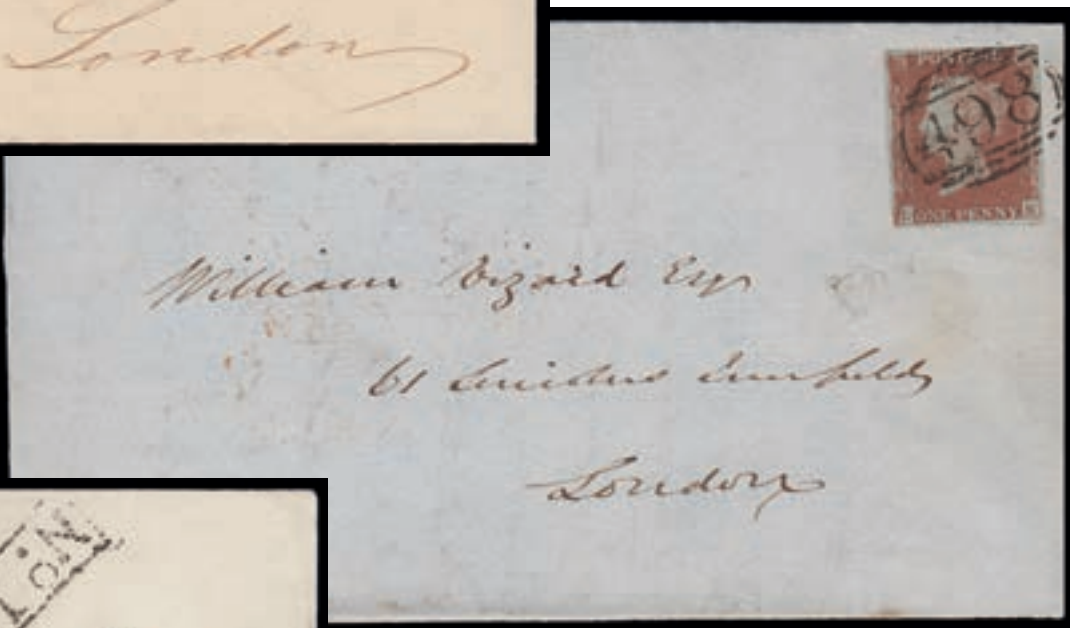 London
POSTAGE
498
B ONE PENNY K
William Vizard Esqr
61 Lincolns Innfields
London